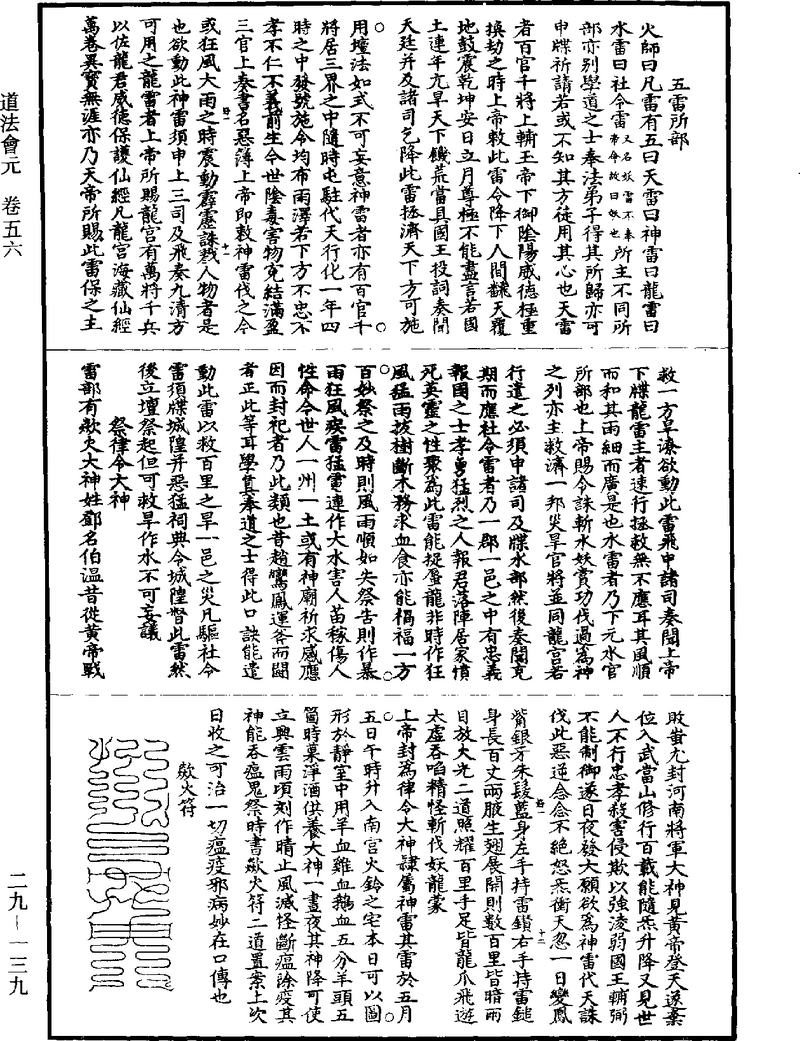 道法會元　卷五六
二九－一三九
五雷所部
火師曰凡雷有五曰天雷曰神雷曰龍雷曰
水雷曰社令雷又名妖雷不奉帝命故曰妖也所主不同所
部亦别學道之士奉法弟子得其所歸亦可
申牒祈請若或不知其方徒用其心也天雷
者百官千將上輔玉帝下御陰陽威德極重
換劫之時上帝敕此雷令降下人間飜天覆
地鼓震乾坤安日立月尊極不能盡言若國
土連年亢旱天下饑荒當具國王投詞奏聞
天廷并及諸司乞降此雷拯濟天下方可施
用壇法如式不可妄意神雷者亦有百官千
將居三界之中隨時屯駐代天行化一年四
時之中發號施令均布雨澤若下方不忠不
孝不仁不義前生今世陰毒害物冤結滿盈
三官上奏書名惡簿上帝即敕神雷伐之令
或狂風大雨之時震動霹靂誅戮人物者是
也欲動此神雷須申上三司及飛奏九清方
可用之龍雷者上帝所賜龍宫有萬將千兵
以佐龍君威德保護仙經凡龍宫海藏仙經
萬卷異寳無涯亦乃天帝所賜此雷保之主
救一方旱潦欲動此雷飛申諸司奏聞上帝
下牒龍雷主者速行拯救無不應耳其風順
而和其雨細而廣是也水雷者乃下元水官
所部也上帝賜令誅斬水妖賞功伐過爲神
之列亦主救濟一邦災旱官將並同龍宫若
行遣之必須申諸司及牒水部然後奏聞克
期而應社令雷者乃一郡一邑之中有忠義
報國之士孝勇猛烈之人報君落陣居家憤
死英靈之性聚爲此雷能捉蜃龍非時作狂
風猛雨拔樹斷木務求血食亦能禍福一方
百妙祭之及時則風雨順如失祭告則作暴
雨狂風疾雷猛電連作大水害人苗稼傷人
性命今世人一州一土或有神廟祈求感應
因而封祀者乃此類也昔趙鸞鳳運斧而鬪
者正此等耳學真奉道之士得此口訣能遣
動此雷以救百里之旱一邑之災凡驅社令
雷須牒城隍并惡猛祠典令城隍督此雷然
後立壇祭起但可救旱作水不可妄議
祭律令大神
雷部有歘火大神姓鄧名伯温昔從黄帝戰
敗蚩尤封河南將軍大神見黄帝登天遂棄
位入武當山修行百載能隨炁升降又見世
人不行忠孝殺害侵欺以強淩弱國王輔弼
不能制御遂日夜發大願欲爲神雷代天誅
伐此惡逆念念不絶怒炁衝天忽一日變鳳
觜銀牙朱髮藍身左手持雷鑽右手持雷鎚
身長百丈兩腋生翅展開則數百里皆暗兩
目放火光二道照耀百里手足皆龍爪飛遊
太虚吞啗精怪斬伐妖龍蒙
上帝封爲律令大神隸屬神雷其雷於五月
五日午時升入南宫火鈴之宅本日可以圖
形於靜室中用羊血雞血鵝血五分羊頭五
箇時菓淨酒供養大神一晝夜其神降可使
立興雲雨頃刻作晴止風滅怪斷瘟除疫其
神能吞瘟鬼祭時書歘火符二道置案上次
日收之可治一切瘟疫邪病妙在口傳也
歘火符